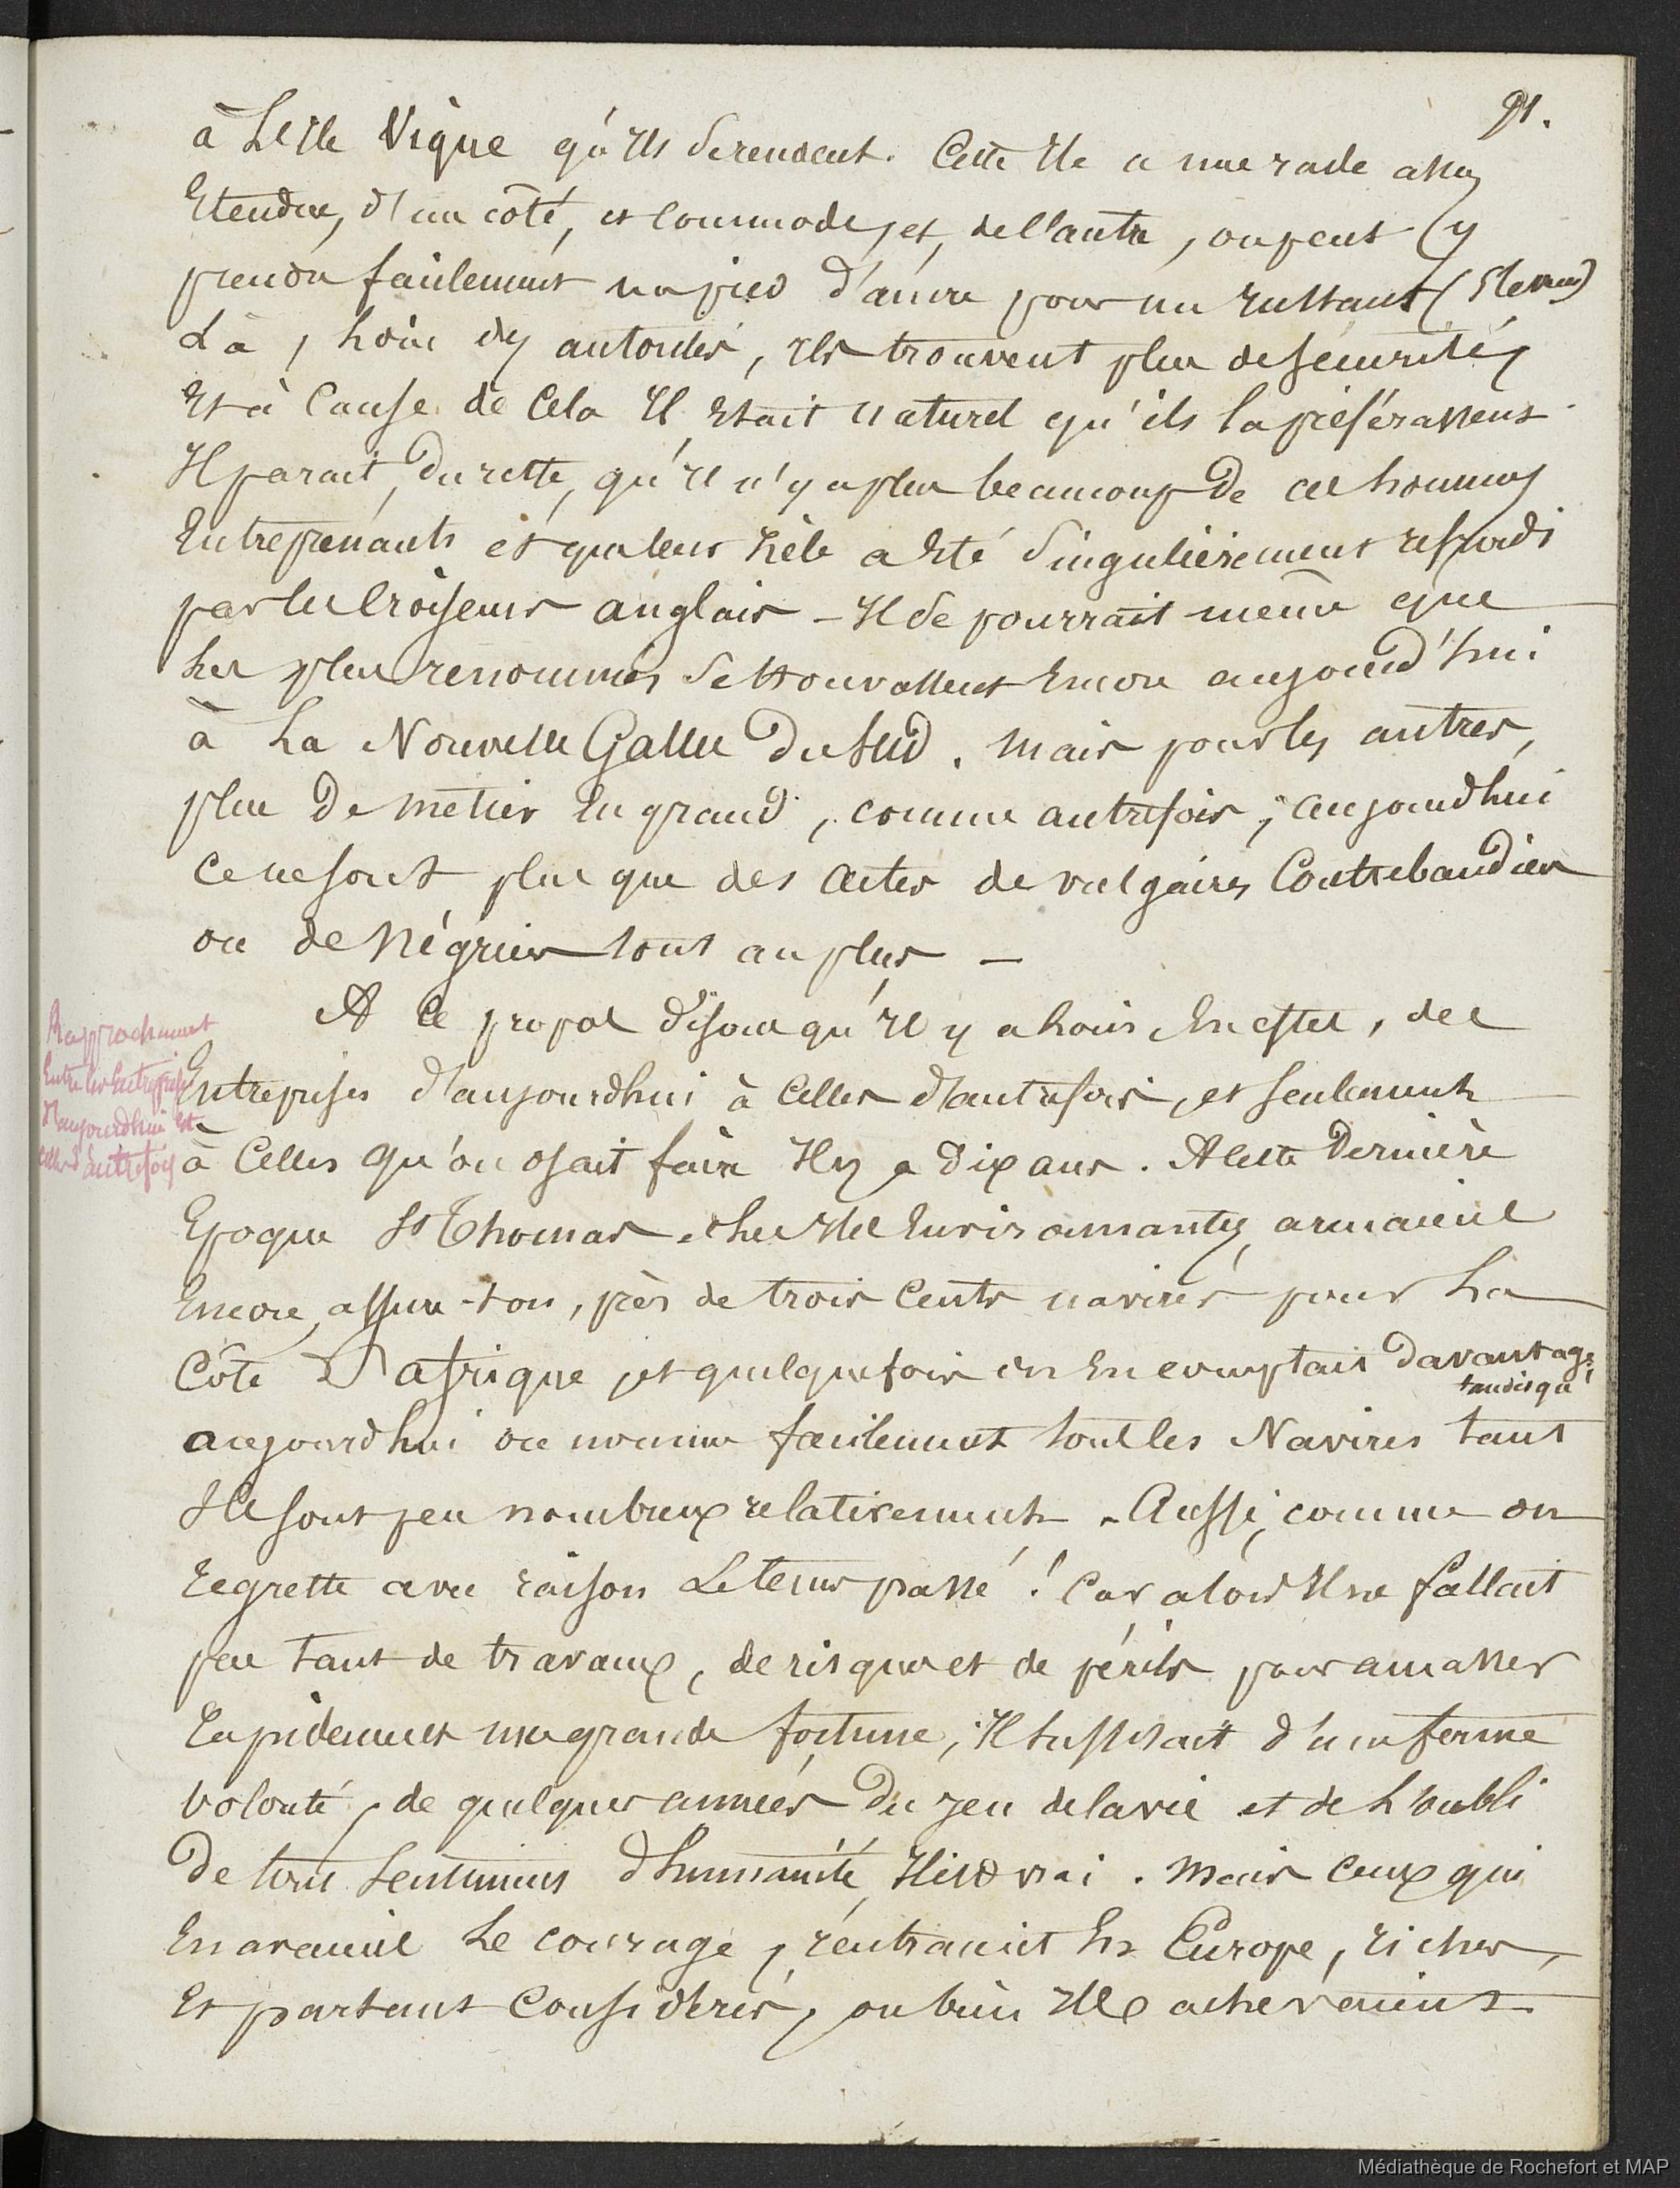 91.
à L'Isle Vique qu'ils se rendent. Cette Ile a une rade assez
Etendue, d'un côté, et commode, et, de l'autre, on peut (y
prendre facilement un pied d'ancre pour un Instant
Là, loin des autorités, ils trouvent plus de sécurité,
Et à cause de cela Il Etait naturel qu'ils la préférassent.
Il parait, du reste, qu'Il n'y a plus beaucoup de ces hommes
Entreprenants et que leur zèle a Eté singulièrement refroidi
par les croiseurs anglais - Il se pourrait même que
les plus renommés se trouvassent Encore aujourd'hui
à La Nouvelle Galles du Sud. Mais pour les autres,
plus de métier En grand, comme autrefois; aujourdhui
ce ne sont plus que des actes de vulgaires Contrebandiers
ou de Négriers tout au plus —
A ce propos disons qu'Il y a loin, En effet, des
Rapprochement
Entre les Entreprises
d'aujourdhui Et
celles d'autrefois
Entreprises d'aujourdhui à celles d'autrefois, et seulement
à Celles qu'on osait faire Il y a dix ans. A cette Dernière
Epoque St Thomas & les Iles Environnantes, armaient
Encore, assure-t-on, près de trois Cents navires pour La
Côte D'afrique, et quelquefois on En comptait davantage,
tandis qu'
aujourdhui on nomme facilement tous les Navires tant
Ils sont peu nombreux relativement. Aussi, comme on
regrette avec raison Le tems passé! Car alors Il ne fallait
pas tant de travaux, de risques et de périls pour amasser
rapidement une grande fortune; Il suffisait d'une ferme
volonté, de quelques années du jeu de la vie et de L'oubli
de tous sentimens d'humanité, Il est vrai. Mais ceux qui
En avaient Le courage, rentraient En Europe, riches,
Et partant Considérés, ou bien Ils achevaient
Médiathèque de Rochefort et MAP